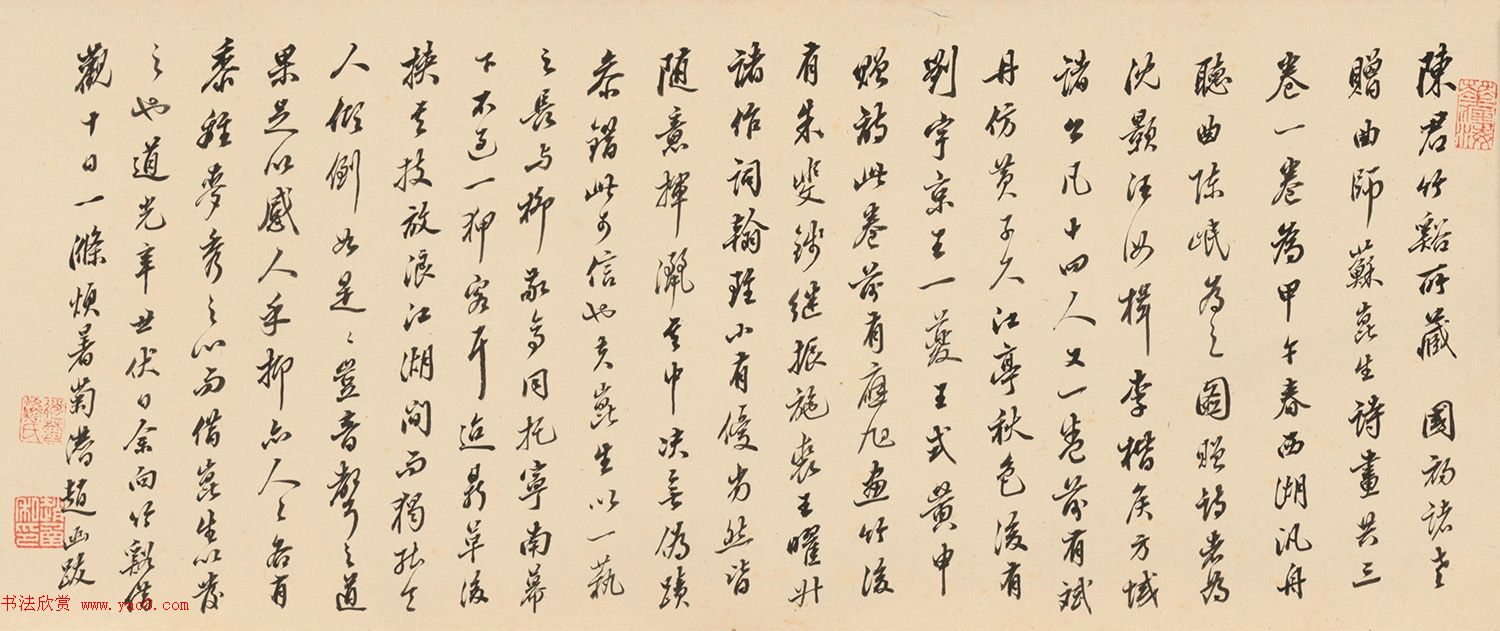 陳君竹谿所藏 國初諸老
贈曲師蘇崑生詩畫共三
卷一卷為甲午春西湖汎舟
聽曲陳岷為之圖贈詩者為
沈顥汪汝楫李楷侯方域
諸公凡十四人又一卷前有斌
丹仿黃子久江亭秋色後有
劉宇京王一夔王式黃申
贈詩此卷前有應旭畫竹後
有朱斐錢繼振施裘王曜升
諸作詞翰雖小有優劣然皆
隨意揮灑其中決無偽蹟
參錯此可信也夫崑生以一藝
之長与柳敬亭同托寧南幕
下不過一狎客耳迨鼎革後
挾其技放浪江湖間而獨能令
人傾倒如是是豈音聲之道
果足以感人乎抑亦人人各有
黍離麥秀之心而借崑生以發
之也道光辛丑伏日余向竹谿借
觀十日一滌煩暑菊潛趙函跋
书法欣赏 www.yac8.com